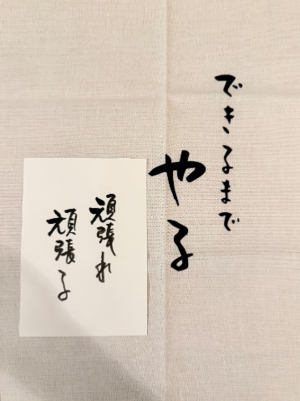 できるまで
やる
頑張れ
頑張る